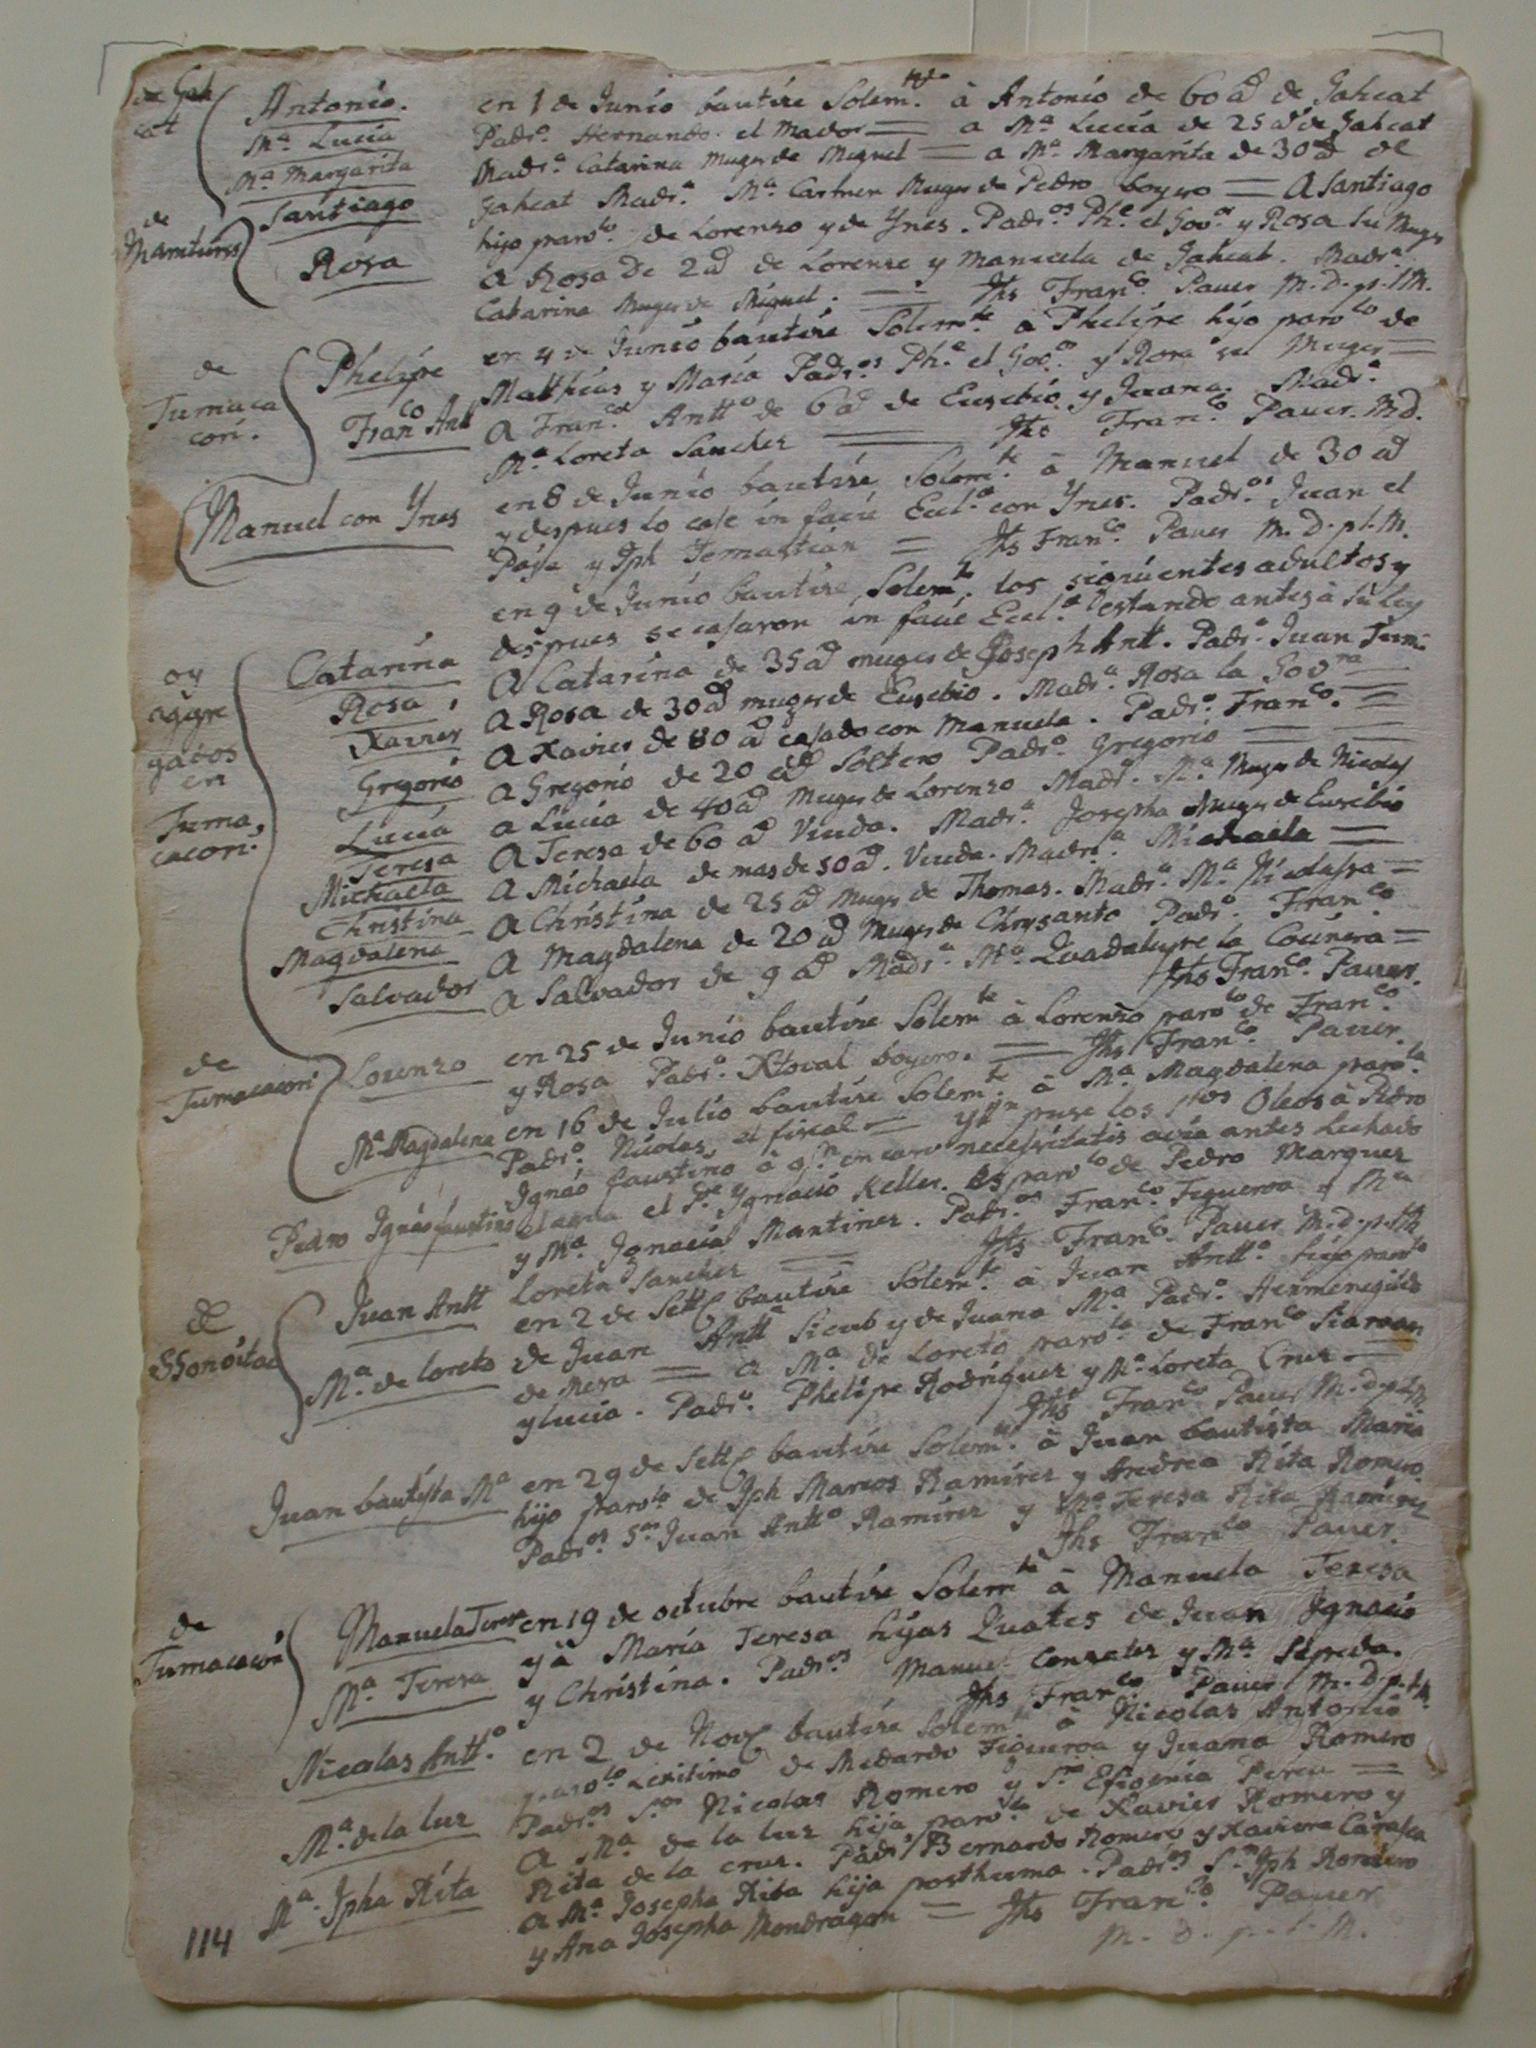 de Gah
cat
Antonio.
Mª Lucia
Mª Margarita
de
Mamturss
Santiago
Rosa
en 1 de Junio bautize Solem.te à Antonio de 60 ad de Gahcat
Padr.o Hernando el Mador = a Mª Lucia de 25 ad de Gahcat
Madr.a Catarina Muger de Miguel = a Mª Margarita de 30 ad de
Gahcat Madr.a Mª Carmen Muger de Pedro boyero = A Santiago
hijo parv.lo de Lorenzo y de Ynes. Padr.os Ph.e el Gov.or y Rosa su Muger
a Rosa de 2 ad de Lorenzo y Manuela de Gahcat. Madr.a
Catarina Muger de Miguel. = Jhs Fran.co Pauer M.D.p.l.M.
de
Tumaca
cori.
Phelipe
Fran.co Antt
en 4 de Junio bautize Solem.te a Phelipe hijo parv.lo de
Matthias y Maria Padr.os Ph.e el Gov.or y Rosa su Muger =
a Fran.ca Antt.o de 6 ad de Eusebio y Juana. Madr.a
Mª Loreta Sanchez = Jhs Fran.co Pauer. M.D.
Manuel con Ynes
en 8 de Junio bautize Solem.te à Manuel de 30 ad
y despues lo casé in facie Eccl.æ con Ynes. Padr.os Juan el
Paja y Jph = Jhs Fran.co Pauer M.D.p.l.M.
en 9 de Junio bautize Solem.te los siguientes adultos y
despues se casaron in facie Eccl.æ estando antes à su ley
oy
aggre
gados
en
Tuma,
cacori.
Catarina
Rosa,
Xavier
Gregorio
Lucia
Teresa
Michaela
Christina
Magdalena
Salvador
A Catarina de 35 ad muger de Joseph Ant. Padr.o Juan Tum.
a Rosa de 30 ad muger de Eusebio. Madr.a Rosa la Gov.ra =
a Xavier de 80 ad casado con Manuela. Padr.o Fran.co. =
a Gregorio de 20 ad Soltero Padr.o Gregorio =
a Lucia de 40 ad Muger de Lorenzo Madr.a Mª Muger de Nicolas
A Teresa de 60 ad Viuda. Madr.a Josepha Muger de Eusebio
A Michaela de mas de 50 ad. Viuda. Madr.a Michaela =
a Christina de 25 ad Muger de Thomas. Madr.a Mª Nicolassa =
a Magdalena de 20 ad Muger de Chrysanto Padr.o Fran.co
a Salvador de 9 ad Madr.a Mª Guadalupe la Cocinera =
Jhs Fran.co Pauer.
de
Tumacacori
Lorenzo
en 25 de Junio bautize Solem.te à Lorenzo parv.lo de Fran.co
y Rosa Padr.o Xtoval boyero. = Jhs Fran.co Pauer.
Mª Magdalena
en 16 de Julio bautize Solem.te à Mª Magdalena parv.la
Padr.o Nicolas el fiscal = y puse los S.tos Oleos à Pedro
Ignao faustino à q.n en caso necessitatis avia antes hechado
Pedro Ignao faustino
el agua el P.e Ygnacio Keller. Es parv.lo de Pedro Marquez
y Mª Ignacia Martinez. Padr.os Fran.co Figueroa y Mª
Loreta Sanchez = Jhs Fran.co Pauer M.D.p.l.M.
de
Sonoitac
Juan Antt
Mª de loreto
en 2 de Sett bautize Solem.te à Juan Antt.o hijo parv.lo
de Juan Antt.o Sicub y de Juana Mª Padr.o Hermenegildo
de Mesa = a Mª de Loreto parv.la de Fran.co Siarvan
y Lucia. Padr.os Phelipe Rodriguez y Mª Loreta Cruz =
Jhs Fran.co Pauer M.D.p.l.M.
Juan bautista Mª
en 29 de Sett bautize Solem.te à Juan bautista Maria
hijo parv.lo de Jph Marcos Ramirez y Andrea Rita Romero.
Padr.os S.res Juan Antt.o Ramirez y Mª Teresa Rita Ramirez
Jhs Fran.co Pauer.
de
Tumacacori
Manuela Teresa
Mª Teresa
en 19 de octubre bautize Solem.te à Manuela Teresa
y à Maria Teresa hijas Quates de Juan Ignacio
y Christina. Padr.os Manuel Conzalez y Mª Sepeda.
Jhs Fran.co Pauer M.D.p.l.M.
Nicolas Antt.o
en 2 de Nov bautize Solem.te à Nicolas Antonio
parv.lo Lexitimo de Medardo Figueroa y Juana Romero
Padr.os S.res Nicolas Romero y S.ra Efigenia Perea =
Mª de la luz
a Mª de la luz hija parv.la de Xavier Romero y
Rita de la cruz. Padr.os Bernardo Romero y Xaviera Carasco
Mª Jpha Rita
a Mª Josepha Rita hija posthuma. Padr.os S.r Jph Romero
y Ana Josepha Mondragon = Jhs Fran.co Pauer
M.D.p.l.M.
114